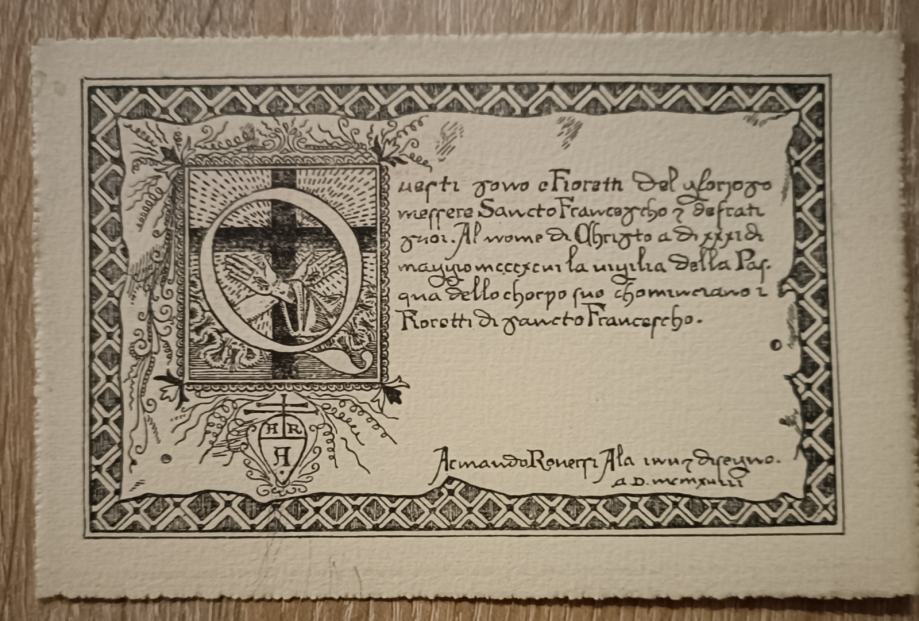 Questi sono e Fioretti del glorioso
messere Sancto Francescho ⁊ de frati
suoi. Al nome di Christo a di xxxi di
maggio mcccxcvi la vigilia della Pas-
qua dello chorpo suo chominciano i
Fioretti di sancto Francescho.
A R
A
Armando disegno.
A.D.